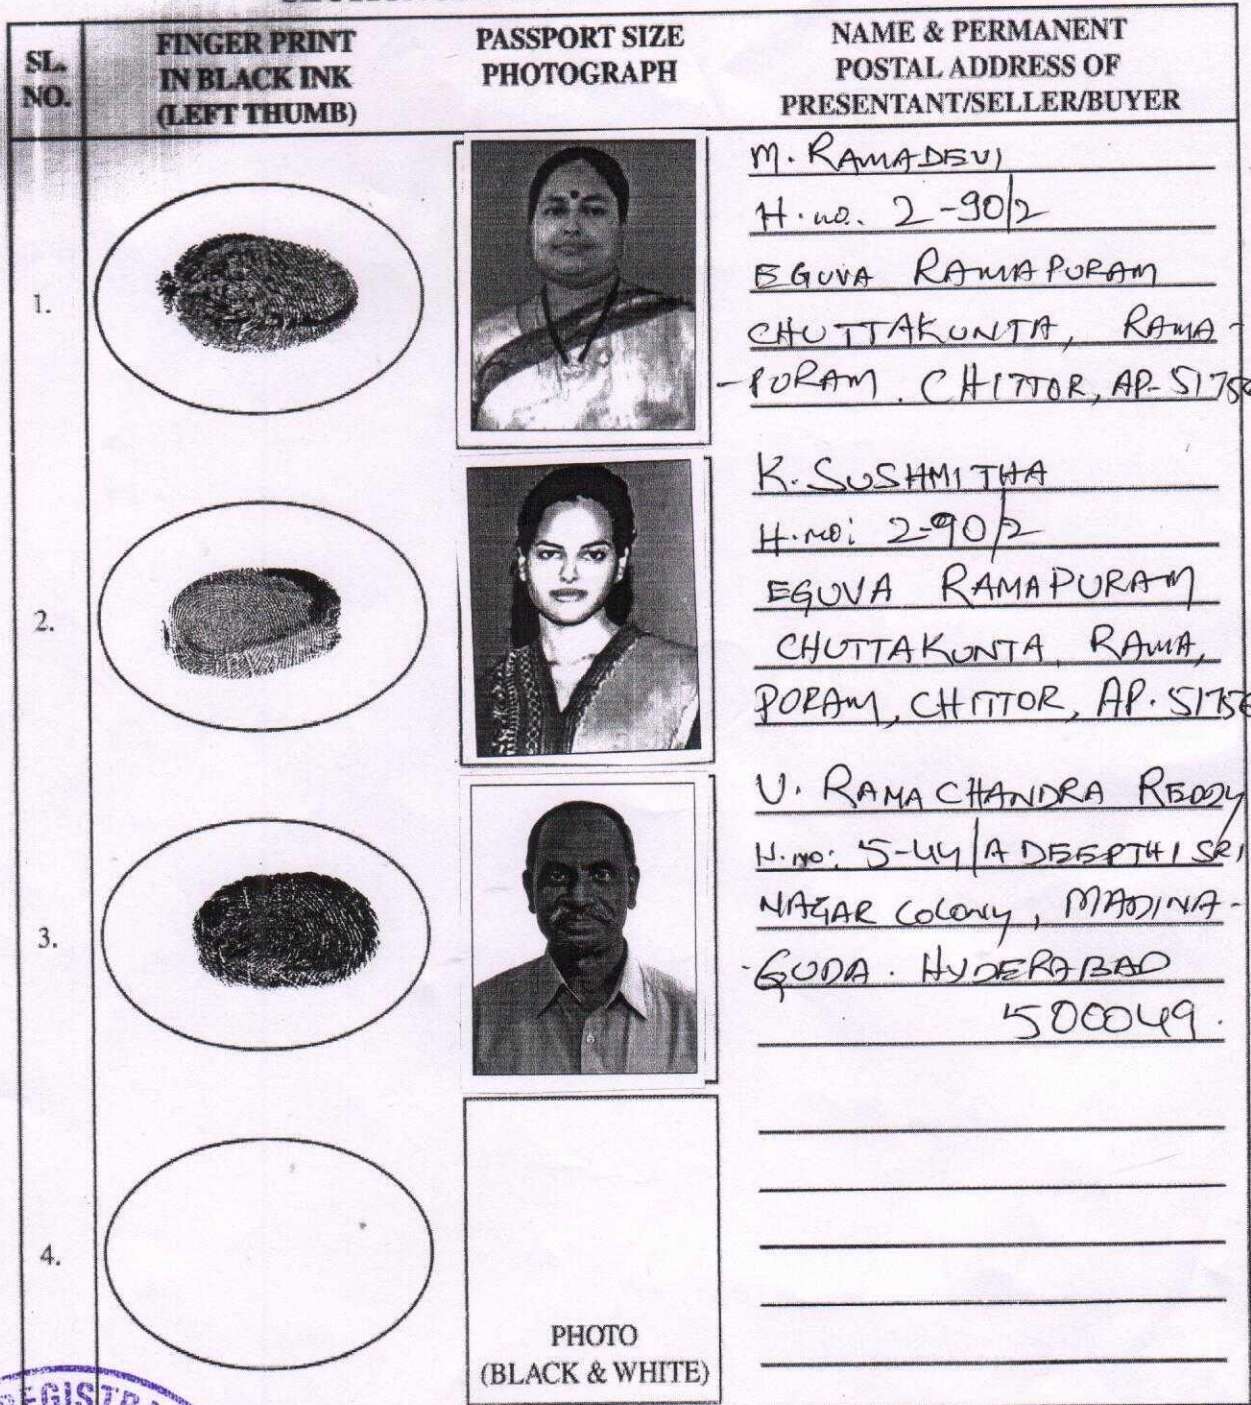 SL. NO.
FINGER PRINT
IN BLACK INK
(LEFT THUMB)
PASSPORT SIZE
PHOTOGRAPH
NAME & PERMANENT
POSTAL ADDRESS OF
PRESENTANT/SELLER/BUYER
1.
M. RAMADEVI
H.no. 2-90/2
EGUVA RAMAPURAM
CHUTTAKUNTA, RAMA-
-PURAM. CHITTOR, AP-
2.
K. SUSHMITHA
H.no: 2-90/2
EGUVA RAMAPURAM
CHUTTAKUNTA, RAMA,
PURAM, CHITTOR, AP.
3.
V. RAMA CHANDRA REDDY
H.no: 5-44/A DEEPTHI SRI
NAGAR COLONY, MADINA-
-GUDA. HYDERABAD
500049.
4.
PHOTO
(BLACK & WHITE)